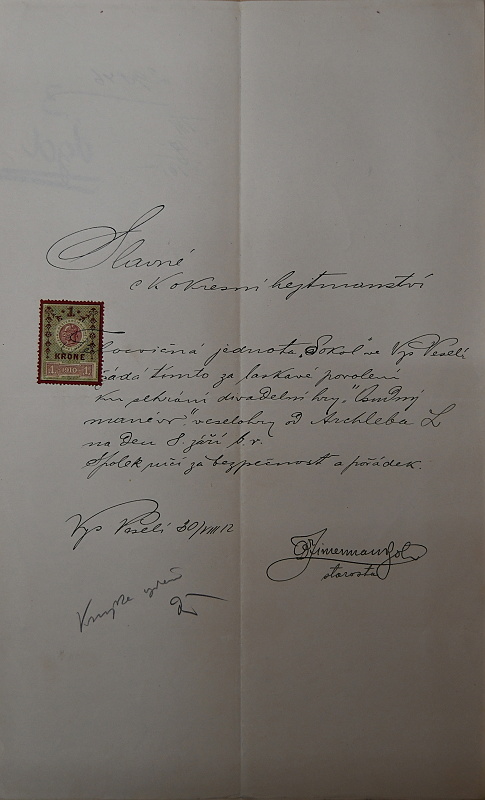 Slavné
c k okresní hejtmanství
1
KRONE
1 1910 1
Tocvičná jednota „Sokol" ve Vys Veselí
žádá tímto za laskavé povolení
ku sehrání divadelní hry „Osudný
manévr". veselohry od Archleba L
na den 8. září b. r.
Spolek ručí za bezpečnost a pořádek.
Vys Veselí 30/VIII 12
Zimerman
starosta